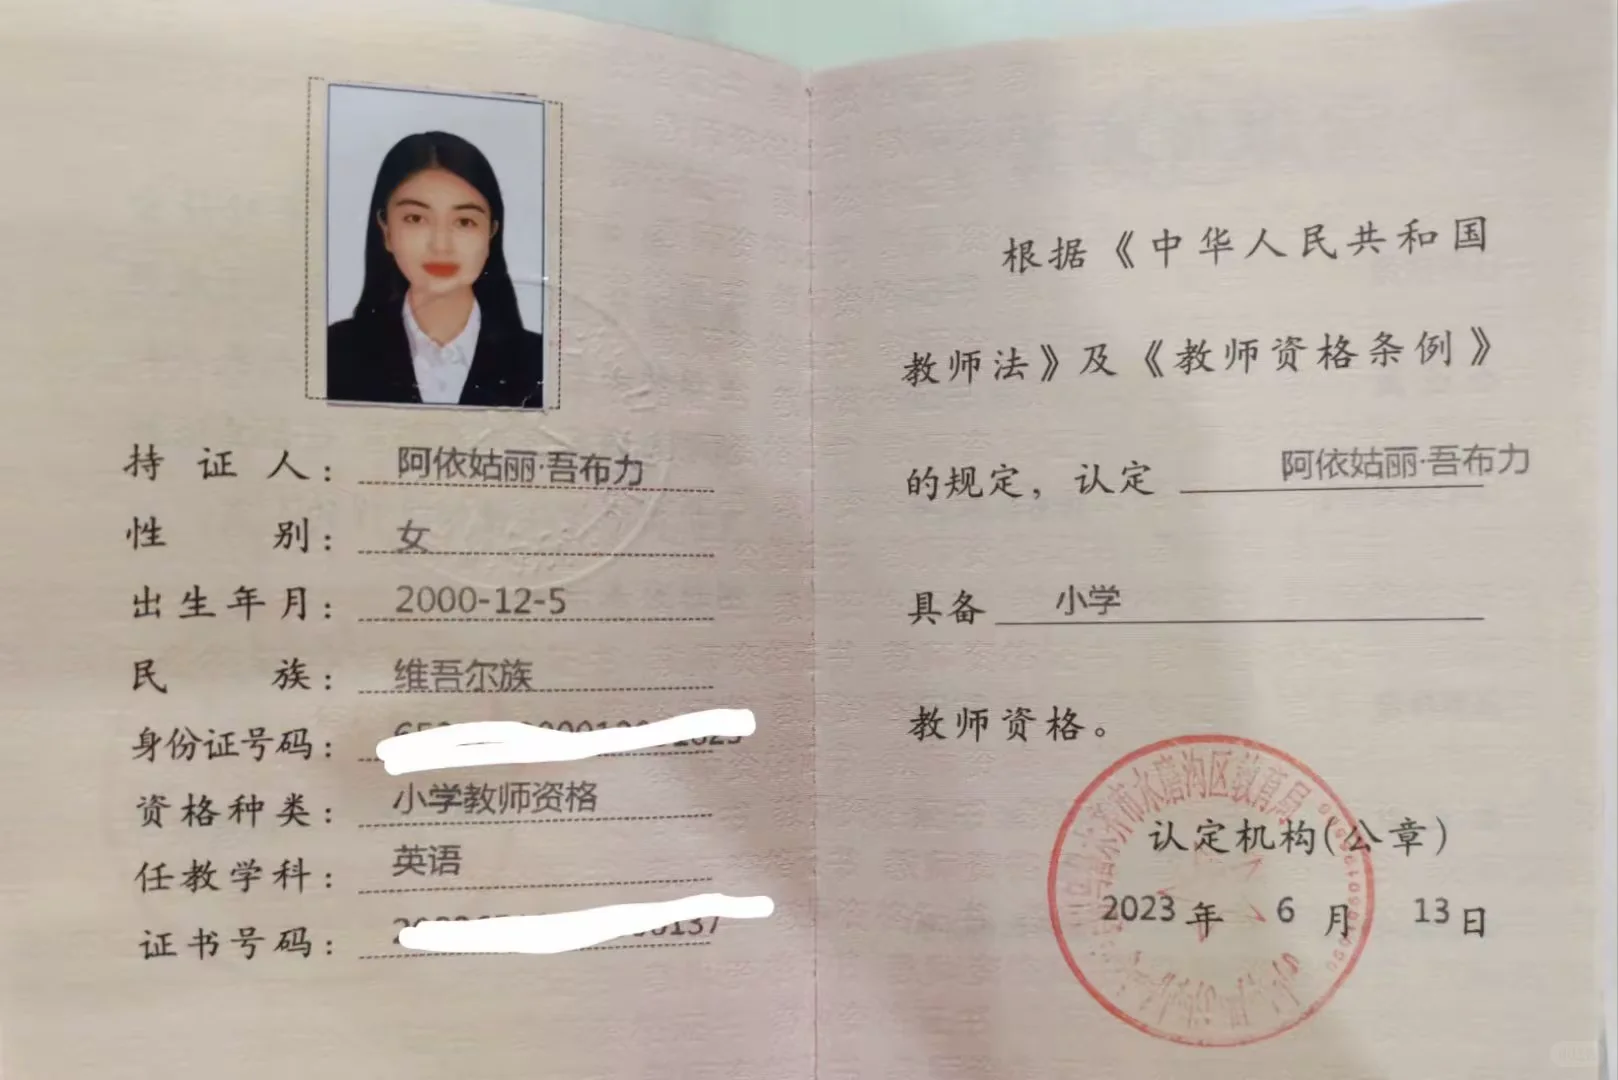 持证人：阿依姑丽·吾布力
性别：女
出生年月：2000-12-5
民族：维吾尔族
身份证号码：
资格种类：小学教师资格
任教学科：英语
证书号码：
根据《中华人民共和国
教师法》及《教师资格条例》
的规定，认定 阿依姑丽·吾布力
具备 小学
教师资格。
水磨沟区教育局
认定机构(公章)
2023年6月13日